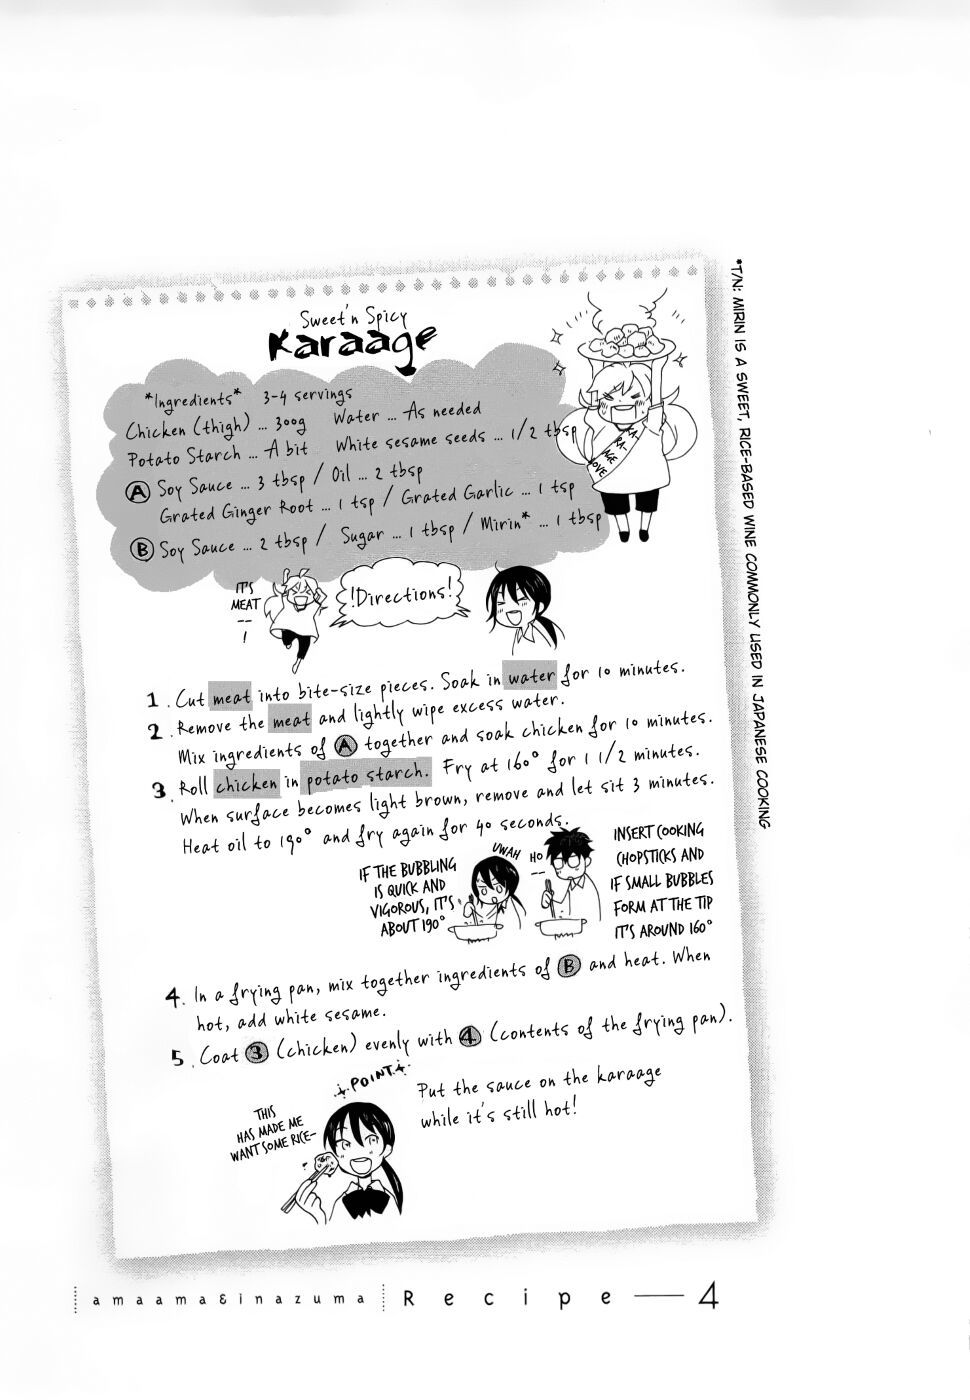 Sweet'n Spicy
Karaage
*Ingredients* 3-4 servings
Chicken (thigh) ... 300g Water ... As needed
Potato Starch ... A bit White sesame seeds ... 1/2 tbsp
Ⓐ Soy Sauce ... 3 tbsp / Oil ... 2 tbsp
Grated Ginger Root ... 1 tsp / Grated Garlic ... 1 tsp
Ⓑ Soy Sauce ... 2 tbsp / Sugar ... 1 tbsp / Mirin* ... 1 tbsp
KA-
RA-
AGE
LOVE
IT'S
MEAT
--
!
!Directions!
1. Cut meat into bite-size pieces. Soak in water for 10 minutes.
2. Remove the meat and lightly wipe excess water.
Mix ingredients of Ⓐ together and soak chicken for 10 minutes.
3. Roll chicken in potato starch. Fry at 160° for 1 1/2 minutes.
When surface becomes light brown, remove and let sit 3 minutes.
Heat oil to 190° and fry again for 40 seconds.
IF THE BUBBLING
IS QUICK AND
VIGOROUS, IT'S
ABOUT 190°
UWAH
HO
--
INSERT COOKING
CHOPSTICKS AND
IF SMALL BUBBLES
FORM AT THE TIP
IT'S AROUND 160°
4. In a frying pan, mix together ingredients of Ⓑ and heat. When
hot, add white sesame.
5. Coat ③ (chicken) evenly with ④ (contents of the frying pan).
POINT
Put the sauce on the karaage
while it's still hot!
THIS
HAS MADE ME
WANT SOME RICE~
*T/N: MIRIN IS A SWEET, RICE-BASED WINE COMMONLY USED IN JAPANESE COOKING
amaama&inazuma Recipe — 4